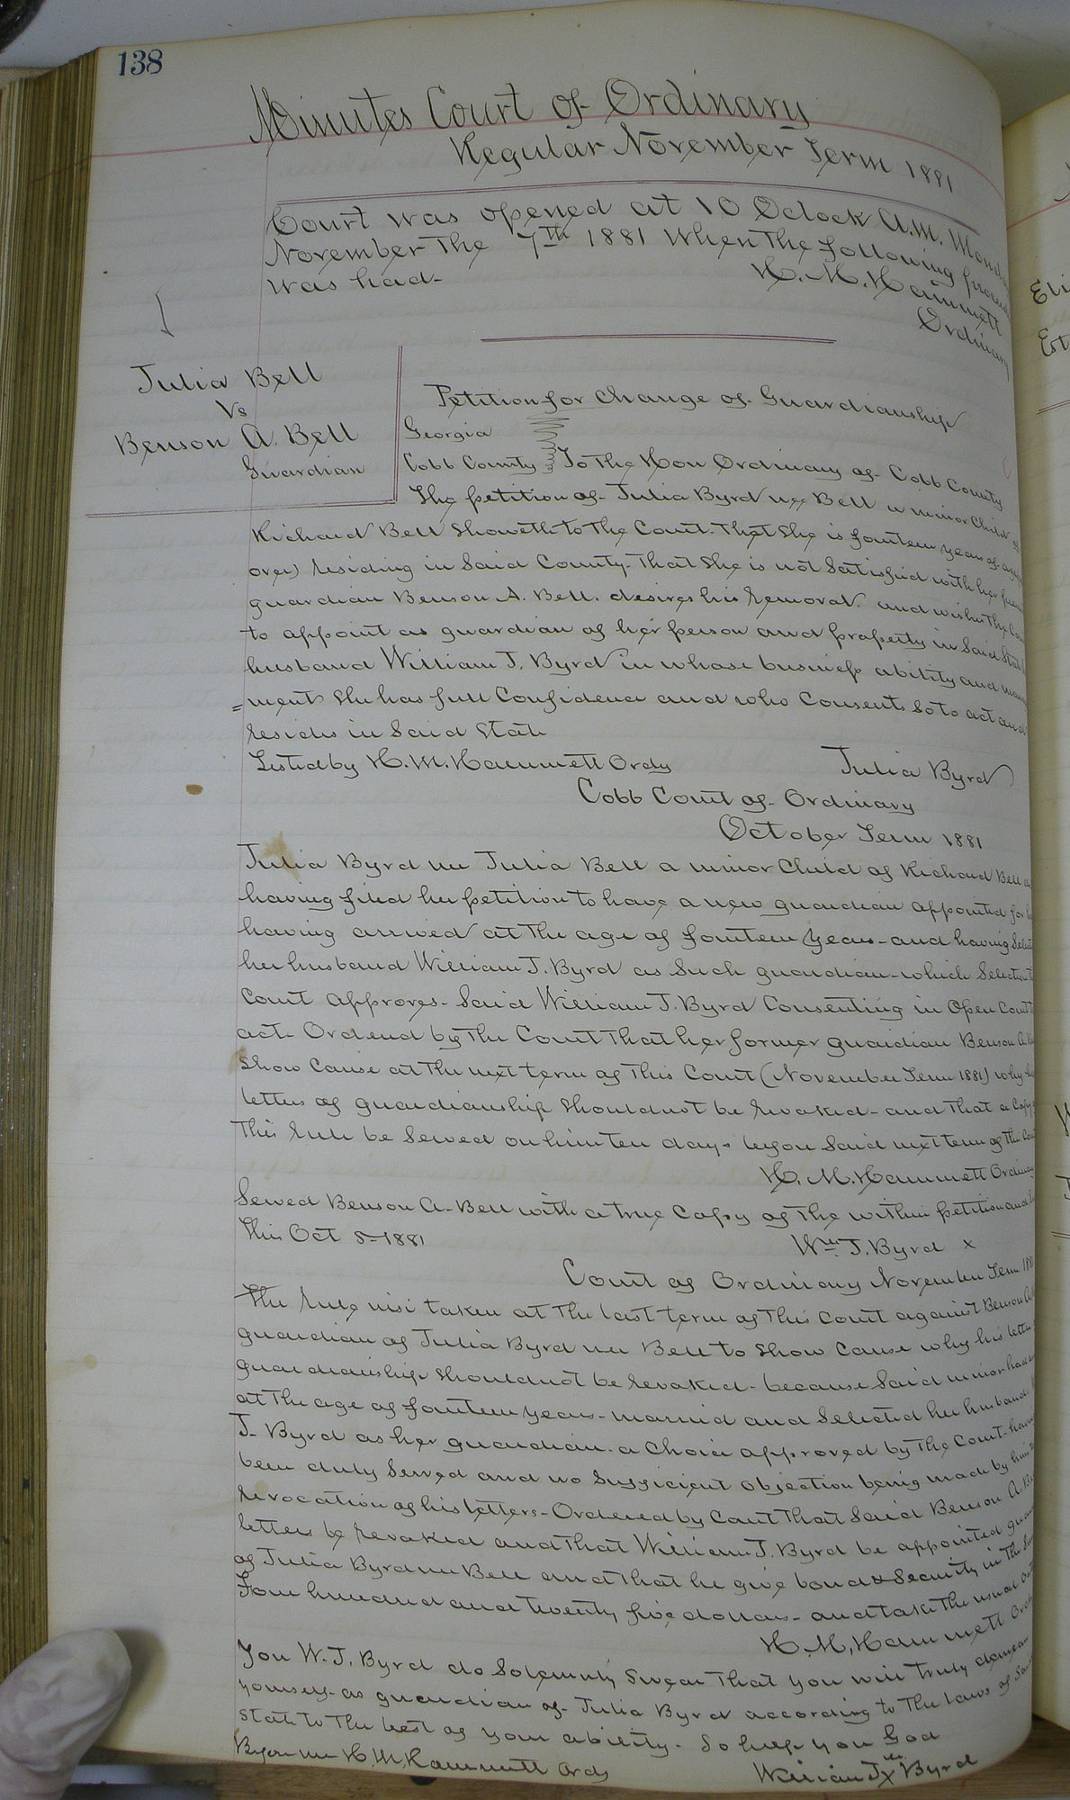 138
Minutes Court of Ordinary
Regular November Term 1881
Court was opened at 10 Oclock A.M. Mond
November the 7th 1881 When the following
was had-
H. M. Hammett
Ordinary
Julia Bell
Vs
Benson A. Bell
Guardian
Petition for Change of Guardianship
Georgia
Cobb County To the Hon Ordinary of Cobb County
The petition of Julia Byrd nee Bell a minor Child of
Richard Bell Showeth to the Court that She is fourteen years of age
over) residing in Said County- that She is not Satisfied with her
guardian Benson A. Bell. desires his removal and wishes the
to appoint as guardian of her person and property in Said State
husband William J. Byrd in whose business ability and
=ment She has full Confidence and who Consents So to act and
resides in Said State
Tested by H. M. Hammett Ordy
Julia Byrd
Cobb Court of Ordinary
October Term 1881
Julia Byrd nee Julia Bell a minor Child of Richard Bell
having filed her petition to have a new guardian appointed for
having arrived at the age of fourteen years- and having Select
her husband William J. Byrd as Such guardian- which Selection
Court approves- Said William J. Byrd Consenting in Open Court
act- Ordered by the Court that her former guardian Benson A.
Show Cause at the next term of this Court (November Term 1881) why
letters of guardianship Should not be revoked- and that a Copy
this rule be Served on him ten days before Said next term of the
H. M. Hammett Ordinary
Served Benson A. Bell with a true Copy of the within petition and
this Oct 8- 1881
Wm. J. Byrd x
Court of Ordinary November Term 188
The rule nisi taken at the last term of this Court against Benson
guardian of Julia Byrd nee Bell to Show Cause why his letters
guardianship Should not be revoked- because Said minor had
at the age of fourteen years- married and Selected her husband
J. Byrd as her guardian- a Choice approved by the Court-
been duly Served and no Sufficient Objection being made by him
revocation of his letters- Ordered by Court that Said Benson A.
letters be revoked and that William J. Byrd be appointed
of Julia Byrd nee Bell and that he give bond & Security in the
Four hundred and twenty five dollars- and take the usual
H. M. Hammett
You W. J. Byrd do Solemnly Swear that you will truly demean
yourself as guardian of Julia Byrd according to the laws of
State to the best of your ability- So help you God
Before me H. M. Hammett Ordy
William J x Byrd